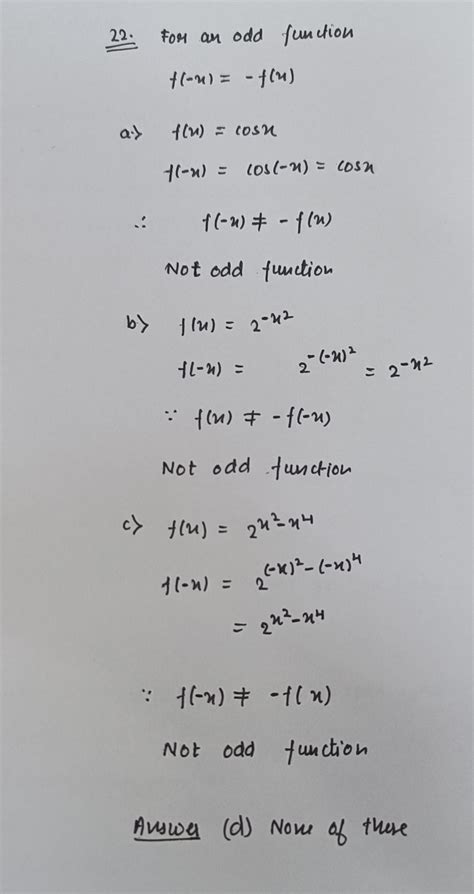 22. For an odd function
f(-x) = -f(x)
a.> f(x) = cosx
f(-x) = cos(-x) = cosx
∴ f(-x) ≠ -f(x)
Not odd function
b> f(x) = 2^{-x^2}
f(-x) = 2^{-(-x)^2} = 2^{-x^2}
∵ f(x) ≠ -f(-x)
Not odd function
c> f(x) = 2^{x^2-x^4}
f(-x) = 2^{(-x)^2-(-x)^4}
= 2^{x^2-x^4}
∵ f(-x) ≠ -f(x)
Not odd function
Answer (d) None of these